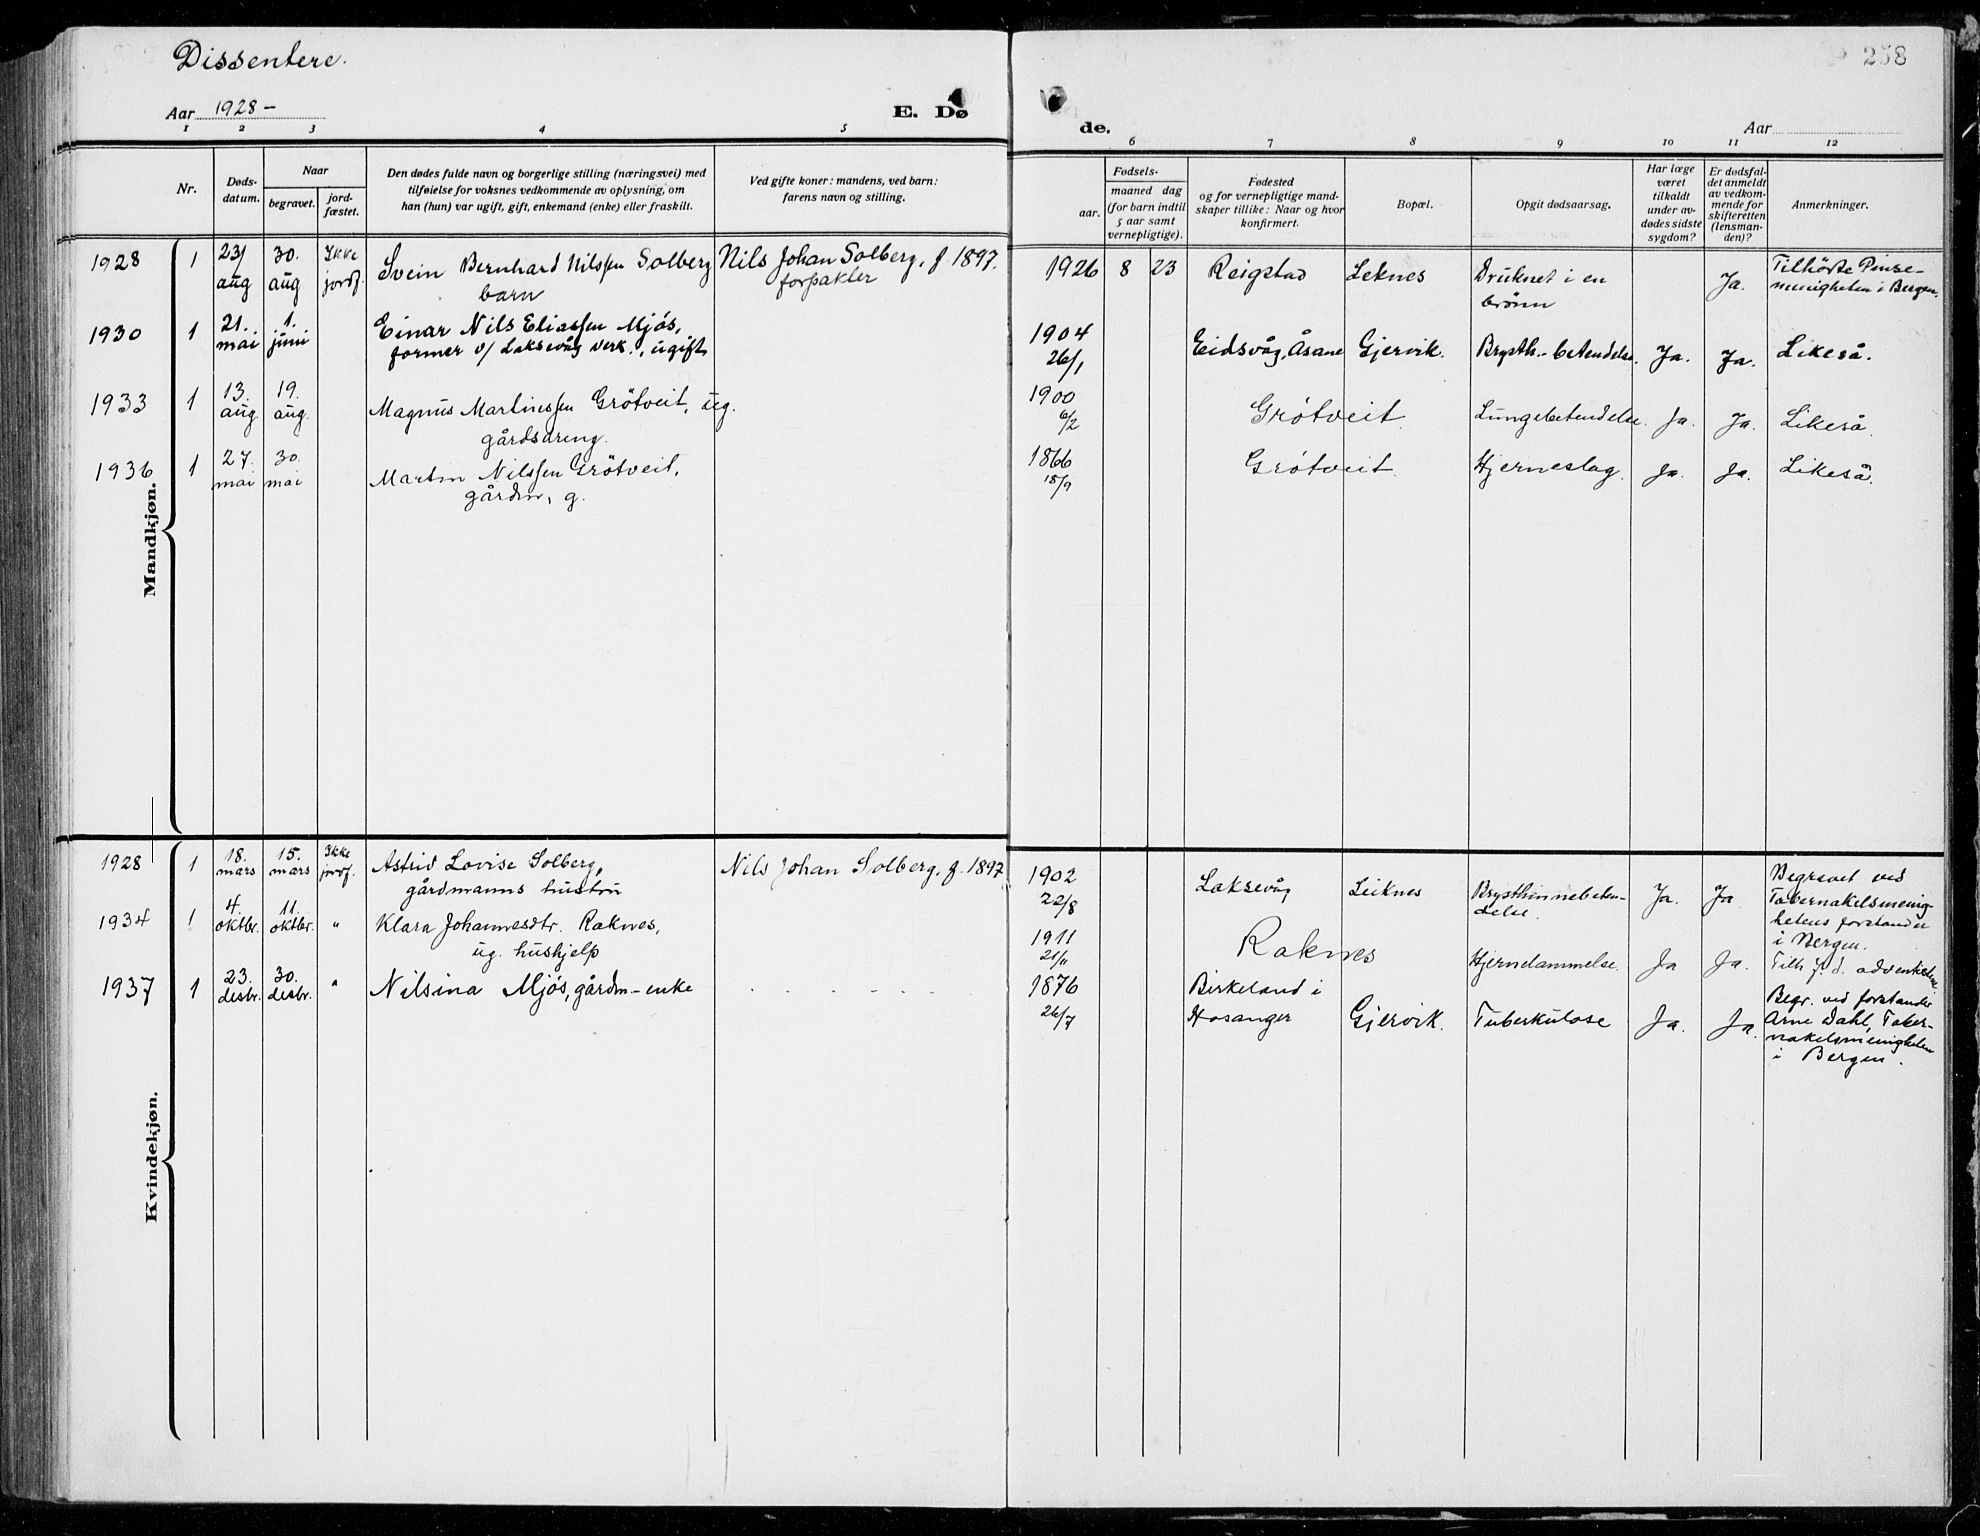 Dissentere.
258
Aar 1928 –
E. Dø
de.
Aar
1 2 3 4 5 6 7 8 9 10 11 12
Nr.
Døds-
datum.
Naar
begravet.
jord-
fæstet.
Den dødes fulde navn og borgerlige stilling (næringsvei) med
tilføielse for voksnes vedkommende av oplysning, om
han (hun) var ugift, gift, enkemand (enke) eller fraskilt.
Ved gifte koner: mandens, ved barn:
farens navn og stilling.
Fødsels-
aar.
maaned dag
(for barn indtil
5 aar samt
vernepligtige).
Fødested
og for vernepligtige mand-
skaper tillike: Naar og hvor
konfirmert.
Bopæl.
Opgit dødsaarsag.
Har læge
været
tilkaldt
under av-
dødes sidste
sygdom?
Er dødsfal-
det anmeldt
av vedkom-
mende for
skifteretten
(lensman-
den)?
Anmerkninger.
Mandkjøn.
1928 1 23/ aug 30. aug Ikke jordf.
Svein Bernhard Nilssen Solberg
barn
Nils Johan Solberg, f 1897.
forpakter
1926 8 23 Reigstad Leknes
Druknet i en
brønn
Ja.
Tilhørte Pinse-
menigheten i Bergen.
1930 1 21. mai 1. juni
Einar Nils Eliassen Mjøs,
former v/ Laksevåg verk., ugift
1904
26/1
Eidsvåg, Åsane Gjervik. Brysth.-betendelse. Ja. Ja. Likeså.
1933 1 13. aug. 19. aug.
Magnus Martinssen Grötveit, ug.
gårdsdreng.
1900
6/2
Grötveit Lungebetendelse. Ja. Ja. Likeså.
1936 1 27. mai 30. mai
Martin Nilssen Grötveit,
gårdm, g.
1866
18/9
Grötveit Hjerneslag. Ja. Ja. Likeså.
Kvindekjøn.
1928 1 18. mars 15. mars Ikke jordf.
Astrid Lovise Solberg,
gårdmanns hustru
Nils Johan Solberg, f. 1897
1902
22/8
Laksevåg Leiknes
Brysthinnebeten-
delse.
Ja. Ja
Begravet ved
Tabernakelsmenig-
hetens forstander
i Bergen.
1934 1 4. oktbr. 11. oktbr. "
Klara Johannesdtr. Raknes,
ug. hushjelp
1911
21/11
Raknes Hjernelammelse. Ja Ja.
Tilh 7. d. adventistene.
1937 1 23. desbr. 30. desbr. "
Nilsina Mjös, gårdm–enke
1876
26/7
Birkeland i
Hosanger
Gjervik. Tuberkulose Ja. Ja.
Begr. ved forstander
Arne Dahl, Taber-
nakelsmenigheten
i Bergen.